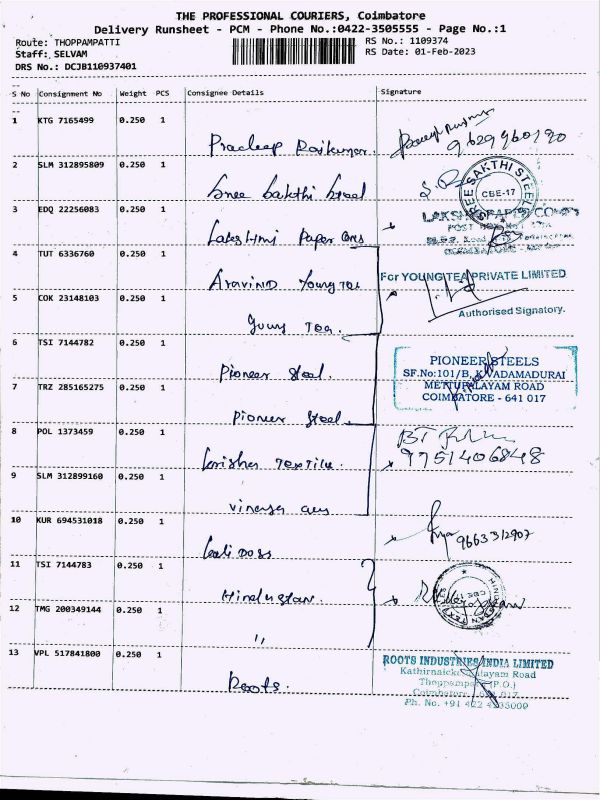 THE PROFESSIONAL COURIERS, Coimbatore
Delivery Runsheet - PCM - Phone No.:0422-3505555 - Page No.:1
Route: THOPPAMPATTI
Staff: SELVAM
DRS No.: DCJB110937401
RS No.: 1109374
RS Date: 01-Feb-2023
S No Consignment No Weight PCS Consignee Details Signature
1 KTG 7165499 0.250 1 Pradeep Rajkumar.
9629960190
2 SLM 312895809 0.250 1 Sree Sakthi Steel
SREE SAKTHI STEEL
CBE-17
3 EDQ 22256083 0.250 1 Lakshmi Paper Cons
LAKSHMI PAPER
POST BOX No.
4 TUT 6336760 0.250 1 Aravind Young Tea
For YOUNG TEA PRIVATE LIMITED
Authorised Signatory.
5 COK 23148103 0.250 1 Young Tea.
6 TSI 7144782 0.250 1 Pioneer Steel.
PIONEER STEELS
SF.No:101/B, K.VADAMADURAI
METTUPALAYAM ROAD
COIMBATORE - 641 017
7 TRZ 285165275 0.250 1 Pioneer Steel.
8 POL 1373459 0.250 1 Krisha Textile.
9751406848
9 SLM 312899160 0.250 1
10 KUR 694531018 0.250 1 Kali Doss
9663312907
11 TSI 7144783 0.250 1 Hindustan.
12 TMG 200349144 0.250 1 "
13 VPL 517841800 0.250 1 Roots.
ROOTS INDUSTRIES INDIA LIMITED
Kathirnaickenpalayam Road
Thoppampatti (P.O.)
Coimbatore - 641 017
Ph. No. +91 422 4335000